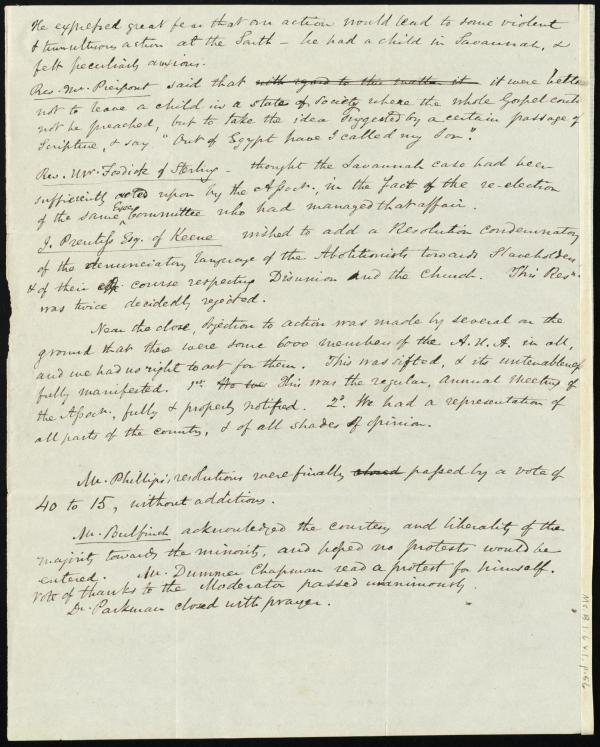 He expressed great fear that our action would lead to some violent
& tumultuous action at the South – he had a child in Savannah, &
felt peculiarly anxious.
Rev. Mr. Pierpont said that with regard to this matter it it were better
not to leave a child in a state of society where the whole Gospel could
not be preached, but to take the idea suggested by a certain passage of
Scripture, & say "Out of Egypt have I called my Son".
Rev. Mr. Fosdick of Sterling – thought the Savannah case had been
sufficiently acted upon by the Assocn., in the fact of the re-election
of the same Exec. Committee who had managed that affair.
J. Prentiss Esq. of Keene wished to add a Resolution condemnatory
of the denunciatory language of the Abolitionists towards Slaveholders,
& of their course respecting Disunion and the Church. This Resn.
was twice decidedly rejected.
Near the close, objection to action was made by several on the
ground that there were some 6000 members of the A.U.A. in all,
and we had no right to act for them. This was sifted, & its untenableness
fully manifested. 1st. He was This was the regular, annual meeting of
the Assocn., fully & properly notified. 2d. We had a representation of
all parts of the country, & of all shades of opinion.
Mr. Phillips' resolutions were finally closed passed by a vote of
40 to 15, without additions.
Mr. Bulfinch acknowledged the courtesy and liberality of the
majority towards the minority, and hoped no protests would be
entered. Mr. Dummer Chapman read a protest for himself.
Vote of thanks to the Moderator passed unanimously.
Dr. Parkman closed with prayer.
Ms. B.1.6 v.1, p.56